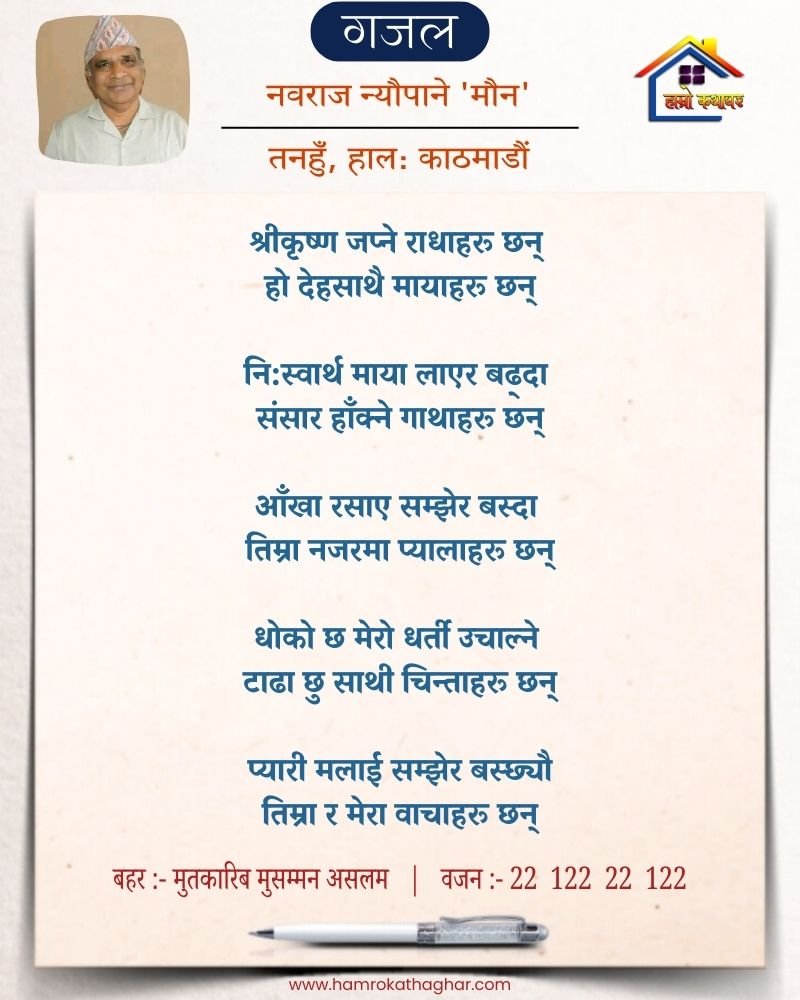 गजल
नवराज न्यौपाने 'मौन'
हाम्रो कथाघर
तनहुँ, हाल: काठमाडौं
श्रीकृष्ण जप्ने राधाहरू छन्
हो देहसाथै मायाहरू छन्
नि:स्वार्थ माया लाएर बढ्दा
संसार हाँक्ने गाथाहरू छन्
आँखा रसाए सम्झेर बस्दा
तिम्रा नजरमा प्यालाहरू छन्
धोको छ मेरो धर्ती उचाल्ने
टाढा छु साथी चिन्ताहरू छन्
प्यारी मलाई सम्झेर बस्छ्यौ
तिम्रा र मेरा वाचाहरू छन्
बहर :- मुतकारिब मुसम्मन असलम | वजन :- 22 122 22 122
www.hamrokathaghar.com